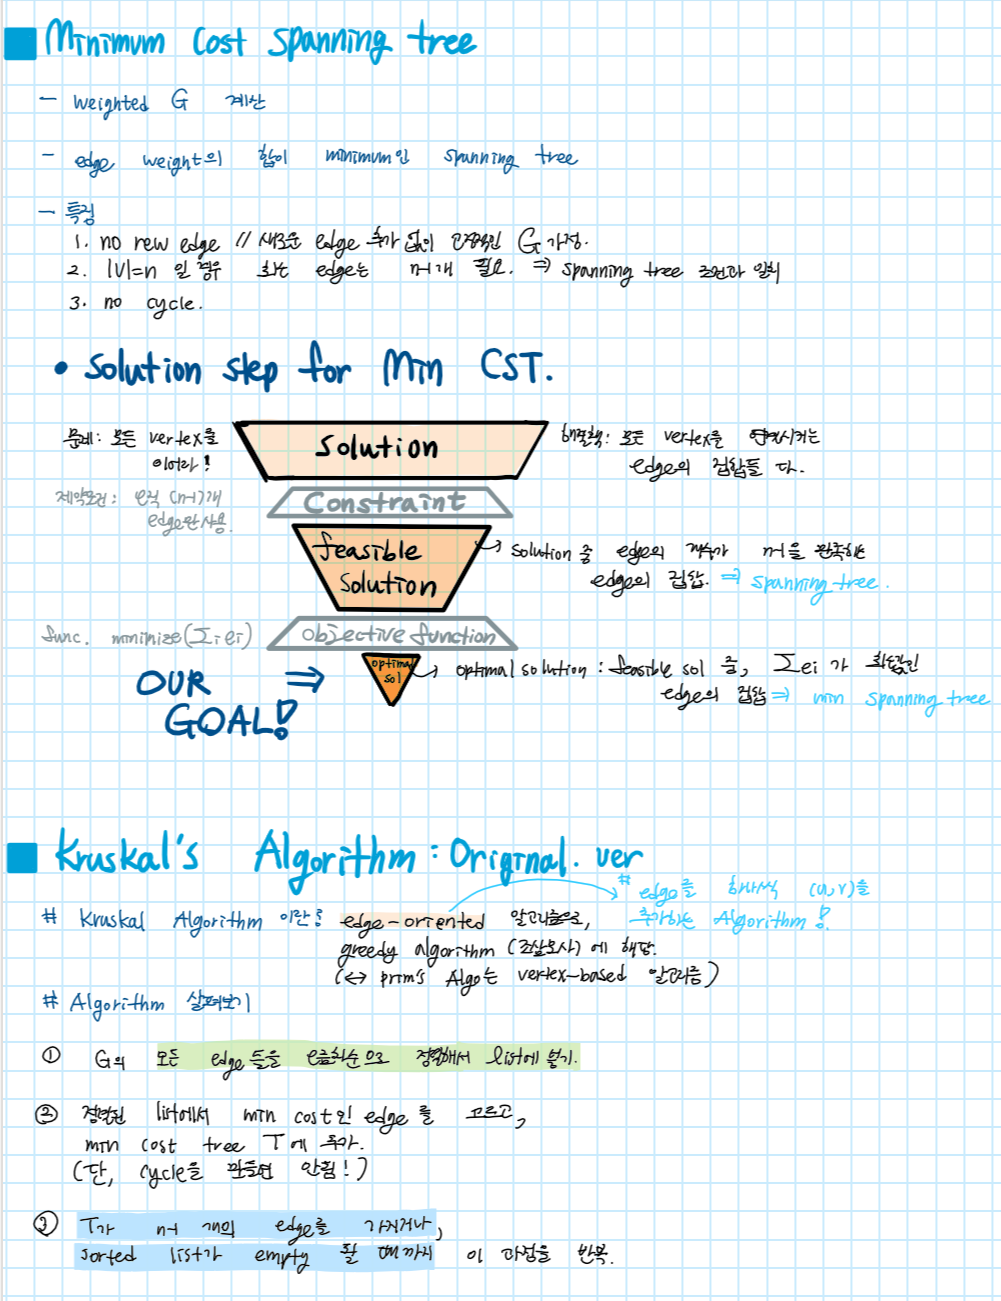 Minimum Cost Spanning tree
- weighted G 계산
- edge weight의 합이 minimum인 spanning tree
- 특징
1. no new edge // 새로운 edge 추가 없이 G 가정.
2. |V|=n 일 경우 최소 edge는 n-1개 필요. ⇒ spanning tree 조건과 일치
3. no cycle.
• Solution step for Min CST.
문제: 모든 vertex를
이어라!
Solution
해결책: 모든 vertex을 연결시키는
edge의 집합들 다.
제약조건: 오직 (n-1)개
edge만 사용.
Constraint
feasible
solution
solution 중 edge의 개수가 n-1을 만족하는
edge의 집합. ⇒ spanning tree.
func. minimize(Σᵢeᵢ)
objective function
OUR
GOAL!
⇒
optimal
sol
optimal solution : feasible sol 중, Σei 가 최솟값인
edge의 집합 ⇒ min spanning tree
Kruskal's Algorithm : Original. ver
# edge를 하나씩 (u,v)을
추가하는 Algorithm!
# Kruskal Algorithm 이란? edge-oriented 알고리즘으로,
greedy algorithm (조삼모사)에 해당.
(↔ prim's Algo는 vertex-based 알고리즘)
# Algorithm 살펴보기
① G의 모든 edge들을 오름차순으로 정렬해서 list에 넣기.
② 정렬된 list에서 min cost인 edge를 고르고,
min cost tree T에 추가.
(단, cycle을 만들면 안됨!)
③ T가 n-1 개의 edge를 가지거나,
sorted list가 empty 될 때까지 이 과정을 반복.